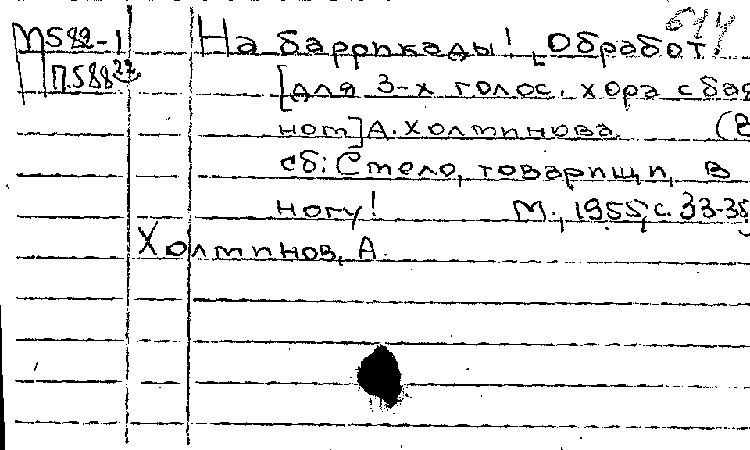 644
М582-1 На баррикады! Обработ.
П588²² [для 3-х голос. хора с бая
ном] А. Холминова. (В
сб: Смело, товарищи, в
ногу! М., 1955, с. 33-35
Холминов, А.